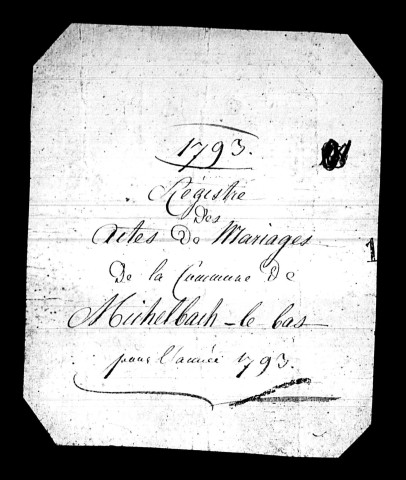 1793.
Régistre
Des
Actes De Mariages
De la Commune De
Michelbach-le bas
pour l'année 1793.
1